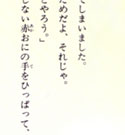 てしまいました。
ためだよ、それじゃ。
とやろう。」
しない赤おにの手をひっぱって、